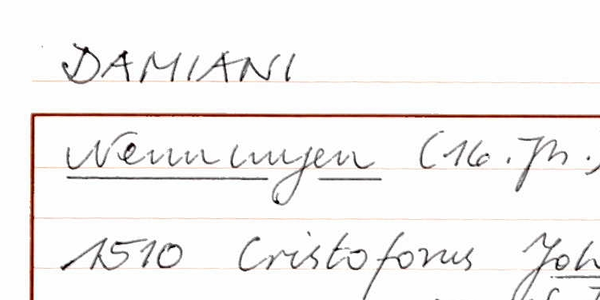 DAMIANI
Nenningen (16. Jh.)
1510 Cristoforus Joh